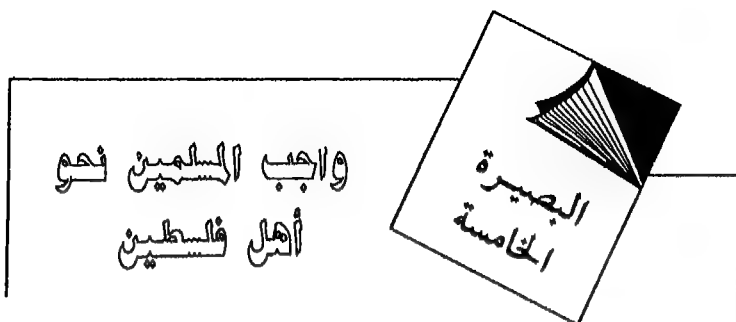 البصيرة
الخامسة
واجب المسلمين نحو
أهل فلسطين